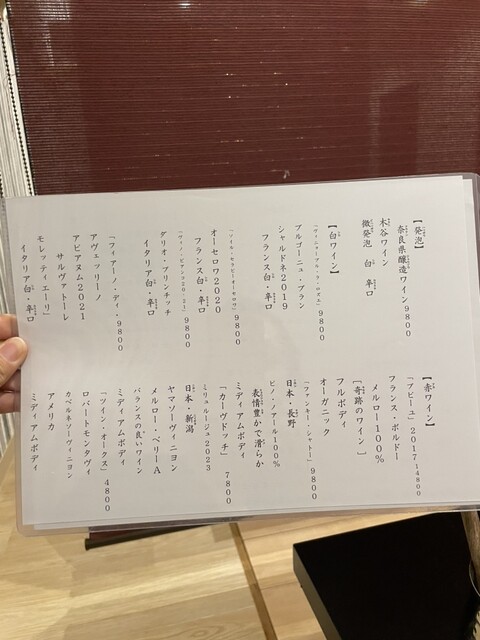 【発泡】
奈良県醸造ワイン 9800
木谷ワイン
微発泡 白 辛口
【白ワイン】
9800
ブルゴーニュ・ブラン
シャルドネ2019
フランス白・辛口
9800
オーセロワ2020
フランス白・辛口
「ヴィノ・ビアンコ2021」9800
グリオ・プリンチッチ
イタリア白・辛口
「フィアーノ・ディ・9800
アヴェッリーノ
アピアヌム2021
サルヴァトーレ
モレッティエーリ」
イタリア白・辛口
【赤ワイン】
「プピーユ」2017 14800
フランス・ボルドー
メルロー100%
【奇跡のワイン】
フルボディ
オーガニック
「ファンキー・シャトー」9800
日本・長野
ピノ・ノアール100%
表情豊かで滑らか
ミディアムボディ
「カーヴドッチ」7800
ミリュルージュ2023
日本・新潟
ヤマソーヴィニヨン
メルロー・ベリーA
バランスの良いワイン
ミディアムボディ
「ツイン・オークス」4800
ロバートモンダヴィ
カベルネソーヴィニヨン
アメリカ
ミディアムボディ